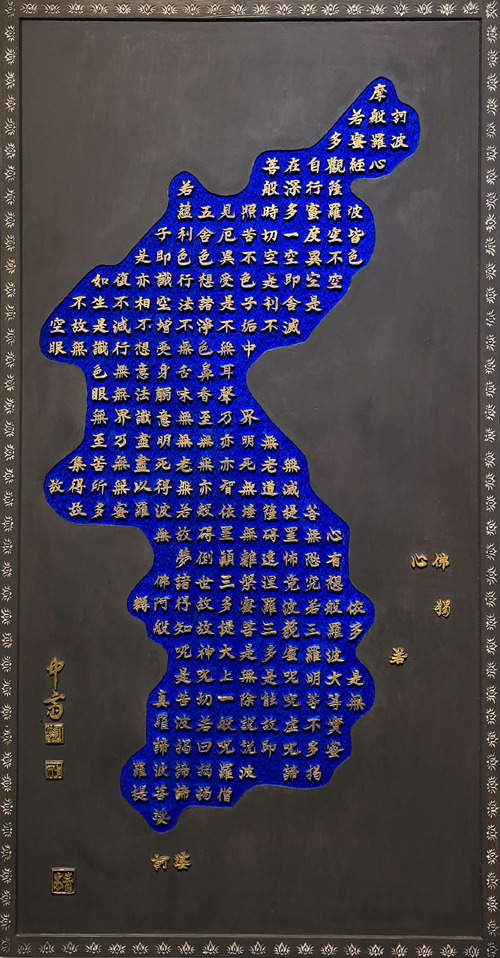 摩
訶般若
波羅蜜多
心經觀自在菩
薩行深般若
波羅蜜多時照見五蘊
皆空度一切苦厄舍利子
色不異空空不異色色即是
空空即是色受想行識亦復如
是舍利子是諸法空相不生不
滅不垢不淨不增不減是故空
中無色無受想行識無眼
耳鼻舌身意無色
聲香味觸法無眼
界乃至無意識界無
無明亦無無明盡乃至
無老死亦無老死盡無苦集
滅道無智亦無得以無所得故
菩提薩埵依般若波羅蜜多故
心無罣碍罣碍故無
有恐怖遠離顛倒夢
佛心
想究竟涅槃三世諸佛
依般若波羅蜜多故得阿耨
多羅三藐三菩提故知般
若波羅蜜多是大神呪
是大明呪是無上呪是
無等等呪能除一切苦真
實不虛故說般若波羅
蜜多呪即說呪曰揭諦
揭諦波羅揭諦波羅
僧揭諦菩提
娑
婆訶